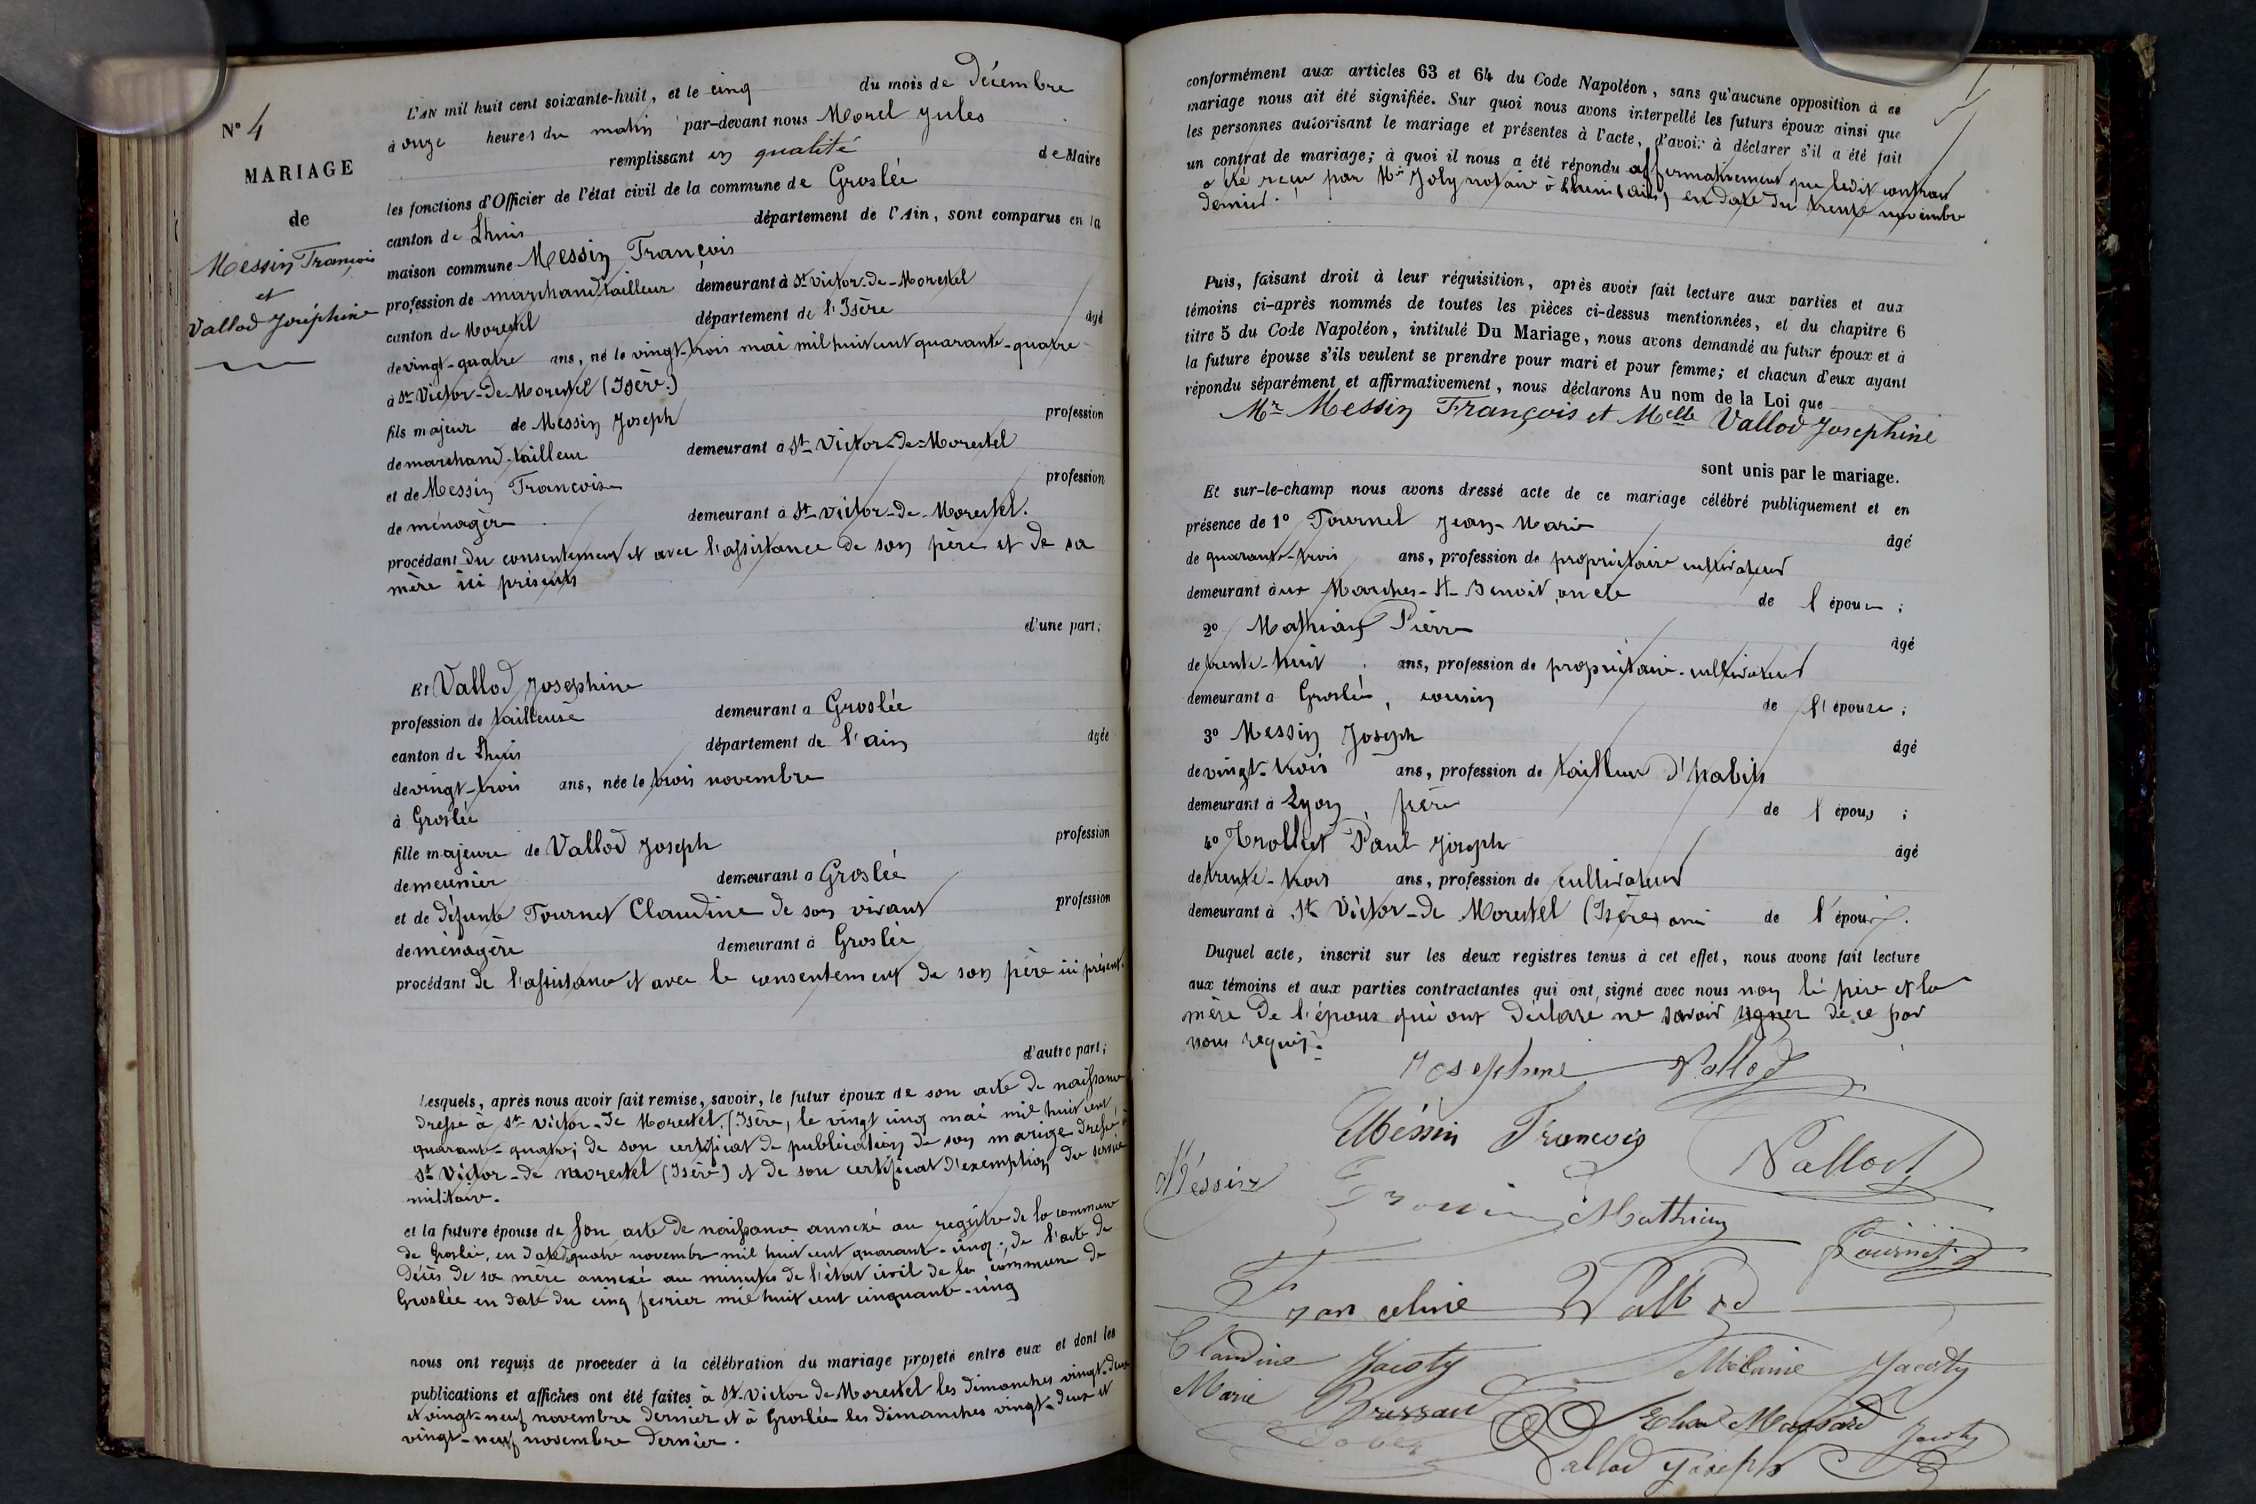 N° 4
MARIAGE
de
Messin François
et
Vallod Joséphine
L'AN mil huit cent soixante-huit, et le cinq du mois de Décembre
à onze heures du matin par-devant nous Morel Jules
remplissant en qualité de Maire
les fonctions d'Officier de l'état civil de la commune de Groslée
canton de Lhuis département de l'Ain, sont comparus en la
maison commune Messin François
profession de marchand tailleur demeurant à St victor-de-Morestel
canton de Morestel département de l'Isère âgé
de vingt-quatre ans, né le vingt-trois mai mil huit cent quarante-quatre
à St Victor-de-Morestel (Isère.)
fils majeur de Messin Joseph profession
de marchand-tailleur demeurant à St Victor-de-Morestel
et de Messin Françoise profession
de ménagère demeurant à St-victor-de-Morestel.
procédant du consentement et avec l'assistance de son père et de sa
mère ici présents
d'une part;
Et Vallod Josephine
profession de tailleuse demeurant à Groslée
canton de Lhuis département de l'ain âgée
de vingt-trois ans, née le trois novembre
à Groslée
fille majeure de Vallod Joseph profession
de meunier demeurant à Groslée
et de défunte Tournet Claudine de son vivant profession
de ménagère demeurant à Groslée
procédant de l'assistance et avec le consentement de son père ici présent.
d'autre part;
Lesquels, après nous avoir fait remise, savoir, le futur époux de son acte de naissance
dressé à St victor-de Morestel (Isère, le vingt cinq mai mil huit cent
quarante-quatre; de son certificat de publication de son mariage dressé à
St Victor-de Morestel (Isère) et de son certificat d'exemption du service
militaire.
et la future épouse de son acte de naissance annexé au registre de la commune
de Groslée, en date quatre novembre mil huit cent quarante-cinq; de l'acte de
décès de sa mère annexé au minutes de l'état civil de la commune de
Groslée en date du cinq fevrier mil huit cent cinquante-cinq
nous ont requis de procéder à la célébration du mariage projeté entre eux et dont les
publications et affiches ont été faites à St-Victor de Morestel les dimanches vingt-deux
et vingt-neuf novembre dernier et à Groslée les dimanches vingt-deux et
vingt-neuf novembre dernier.
conformément aux articles 63 et 64 du Code Napoléon, sans qu'aucune opposition à ce
mariage nous ait été signifiée. Sur quoi nous avons interpellé les futurs époux ainsi que
les personnes autorisant le mariage et présentes à l'acte, d'avoir à déclarer s'il a été fait
un contrat de mariage; à quoi il nous a été répondu affirmativement que ledit contrat
a été reçu par Mr Joly notaire à Lhuis (ain) en date du trente novembre
dernier.
Puis, faisant droit à leur réquisition, après avoir fait lecture aux parties et aux
témoins ci-après nommés de toutes les pièces ci-dessus mentionnées, et du chapitre 6
titre 5 du Code Napoléon, intitulé Du Mariage, nous avons demandé au futur époux et à
la future épouse s'ils veulent se prendre pour mari et pour femme; et chacun d'eux ayant
répondu séparément et affirmativement, nous déclarons Au nom de la Loi que
Mr Messin François et Melle Vallod Josephine
sont unis par le mariage.
Et sur-le-champ nous avons dressé acte de ce mariage célébré publiquement et en
présence de 1° Tournet Jean-Marie âgé
de quarante-trois ans, profession de propriétaire cultivateur
demeurant aux Marches-St-Benoit, oncle de l'épouse;
2° Mathian Pierre âgé
de trente-huit ans, profession de propriétaire-cultivateur
demeurant à Groslée, cousin de l'épouse;
3° Messin Joseph âgé
de vingt-trois ans, profession de tailleur d'habits
demeurant à Lyon, frère de l'époux;
4° Trolliet Paul Joseph âgé
de trente-trois ans, profession de cultivateur
demeurant à St Victor-de Morestel (Isère) ami de l'époux.
Duquel acte, inscrit sur les deux registres tenus à cet effet, nous avons fait lecture
aux témoins et aux parties contractantes qui ont signé avec nous non le père et la
mère de l'époux qui ont déclaré ne savoir signer de ce par
nous requis.
Josephine Vallod
Méssin François
Vallod
Méssin
Mathian
Tournet
Franceline Vallod
Claudine Jacoty Mélanie Jacoty
Marie Bressand
Massard
Vallod Joseph